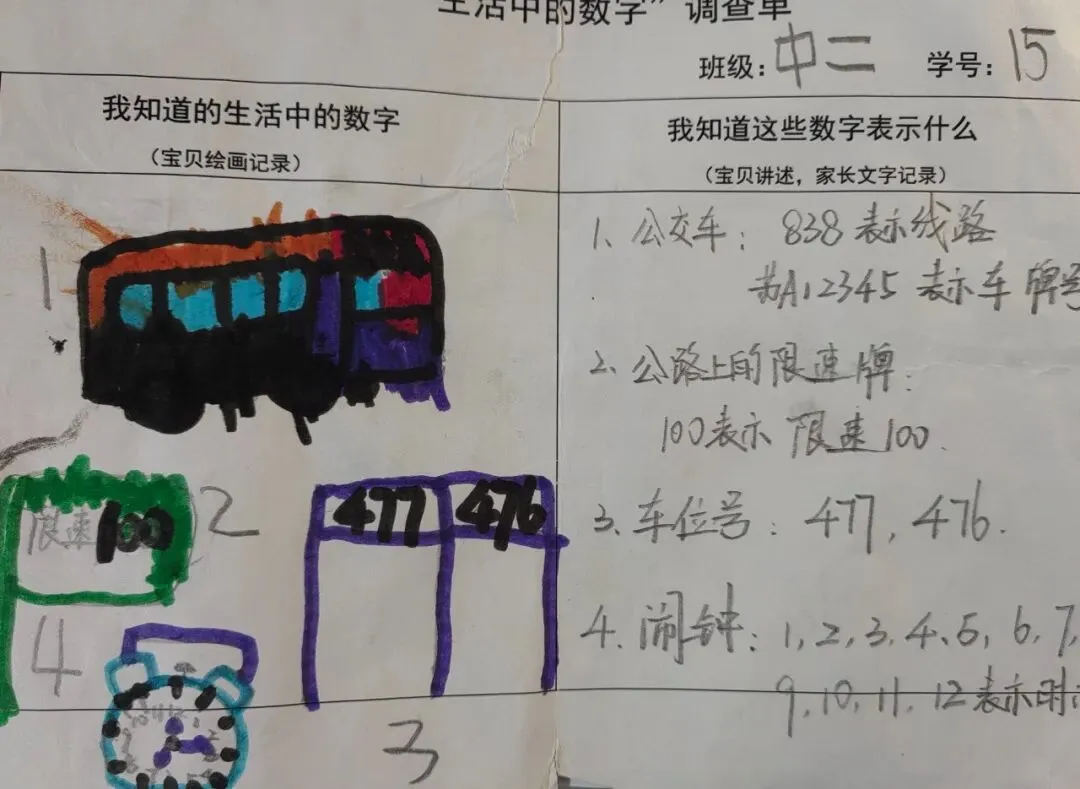 生活中的数字”调查单
班级：中二 学号：15
我知道的生活中的数字
（宝贝绘画记录）
我知道这些数字表示什么
（宝贝讲述，家长文字记录）
1
限速100
2
477 476
4
3
1、公交车：838表示线路
苏A12345表示车牌号
2、公路上的限速牌：
100表示限速100.
3、车位号：477, 476.
4、闹钟：1, 2, 3, 4, 5, 6, 7,
9, 10, 11, 12表示时